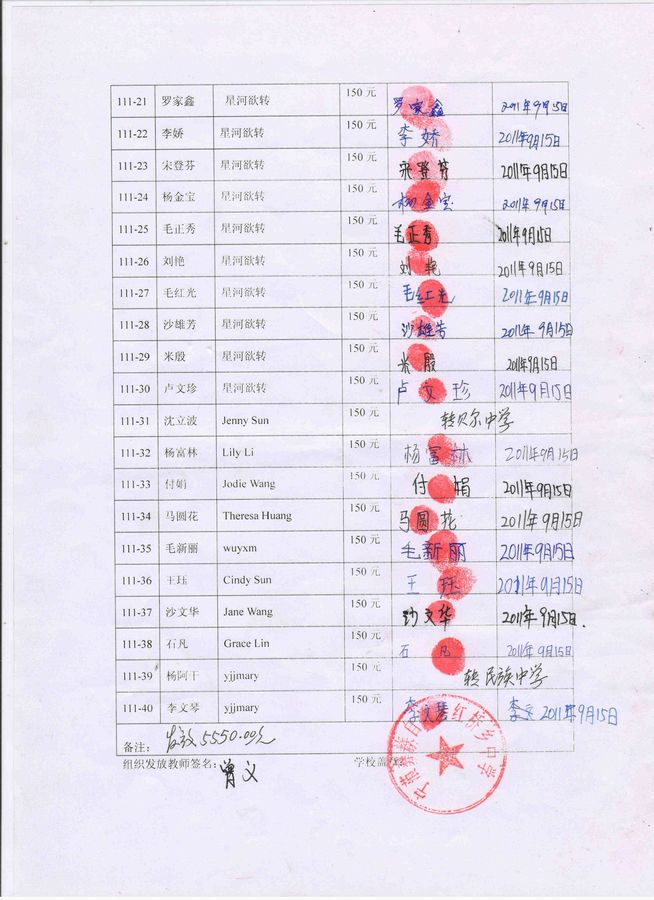 111-21 罗家鑫 星河欲转 150 元 罗家鑫 2011年9月15日
111-22 李娇 星河欲转 150 元 李娇 2011年9月15日
111-23 宋登芬 星河欲转 150 元 宋登芬 2011年9月15日
111-24 杨金宝 星河欲转 150 元 杨金宝 2011年9月15日
111-25 毛正秀 星河欲转 150 元 毛正秀 2011年9月15日
111-26 刘艳 星河欲转 150 元 刘艳 2011年9月15日
111-27 毛红光 星河欲转 150 元 毛红光 2011年9月15日
111-28 沙雄芳 星河欲转 150 元 沙雄芳 2011年9月15日
111-29 米殷 星河欲转 150 元 米殷 2011年9月15日
111-30 卢文珍 星河欲转 150 元 卢文珍 2011年9月15日
111-31 沈立波 Jenny Sun 150 元 转贝尔中学
111-32 杨富林 Lily Li 150 元 杨富林 2011年9月15日
111-33 付娟 Jodie Wang 150 元 付娟 2011年9月15日
111-34 马圆花 Theresa Huang 150 元 马圆花 2011年9月15日
111-35 毛新丽 wuyxm 150 元 毛新丽 2011年9月15日
111-36 王珏 Cindy Sun 150 元 王珏 2011年9月15日
111-37 沙文华 Jane Wang 150 元 沙文华 2011年9月15日.
111-38 石凡 Grace Lin 150 元 石凡 2011年9月15日
111-39 杨阿干 yjjmary 150 元 转民族中学
111-40 李文琴 yjjmary 150 元 李文琴 2011年9月15日
备注： 发放5550.00元
组织发放教师签名： 曾义 学校盖章
宁蒗彝族自 红桥乡中学